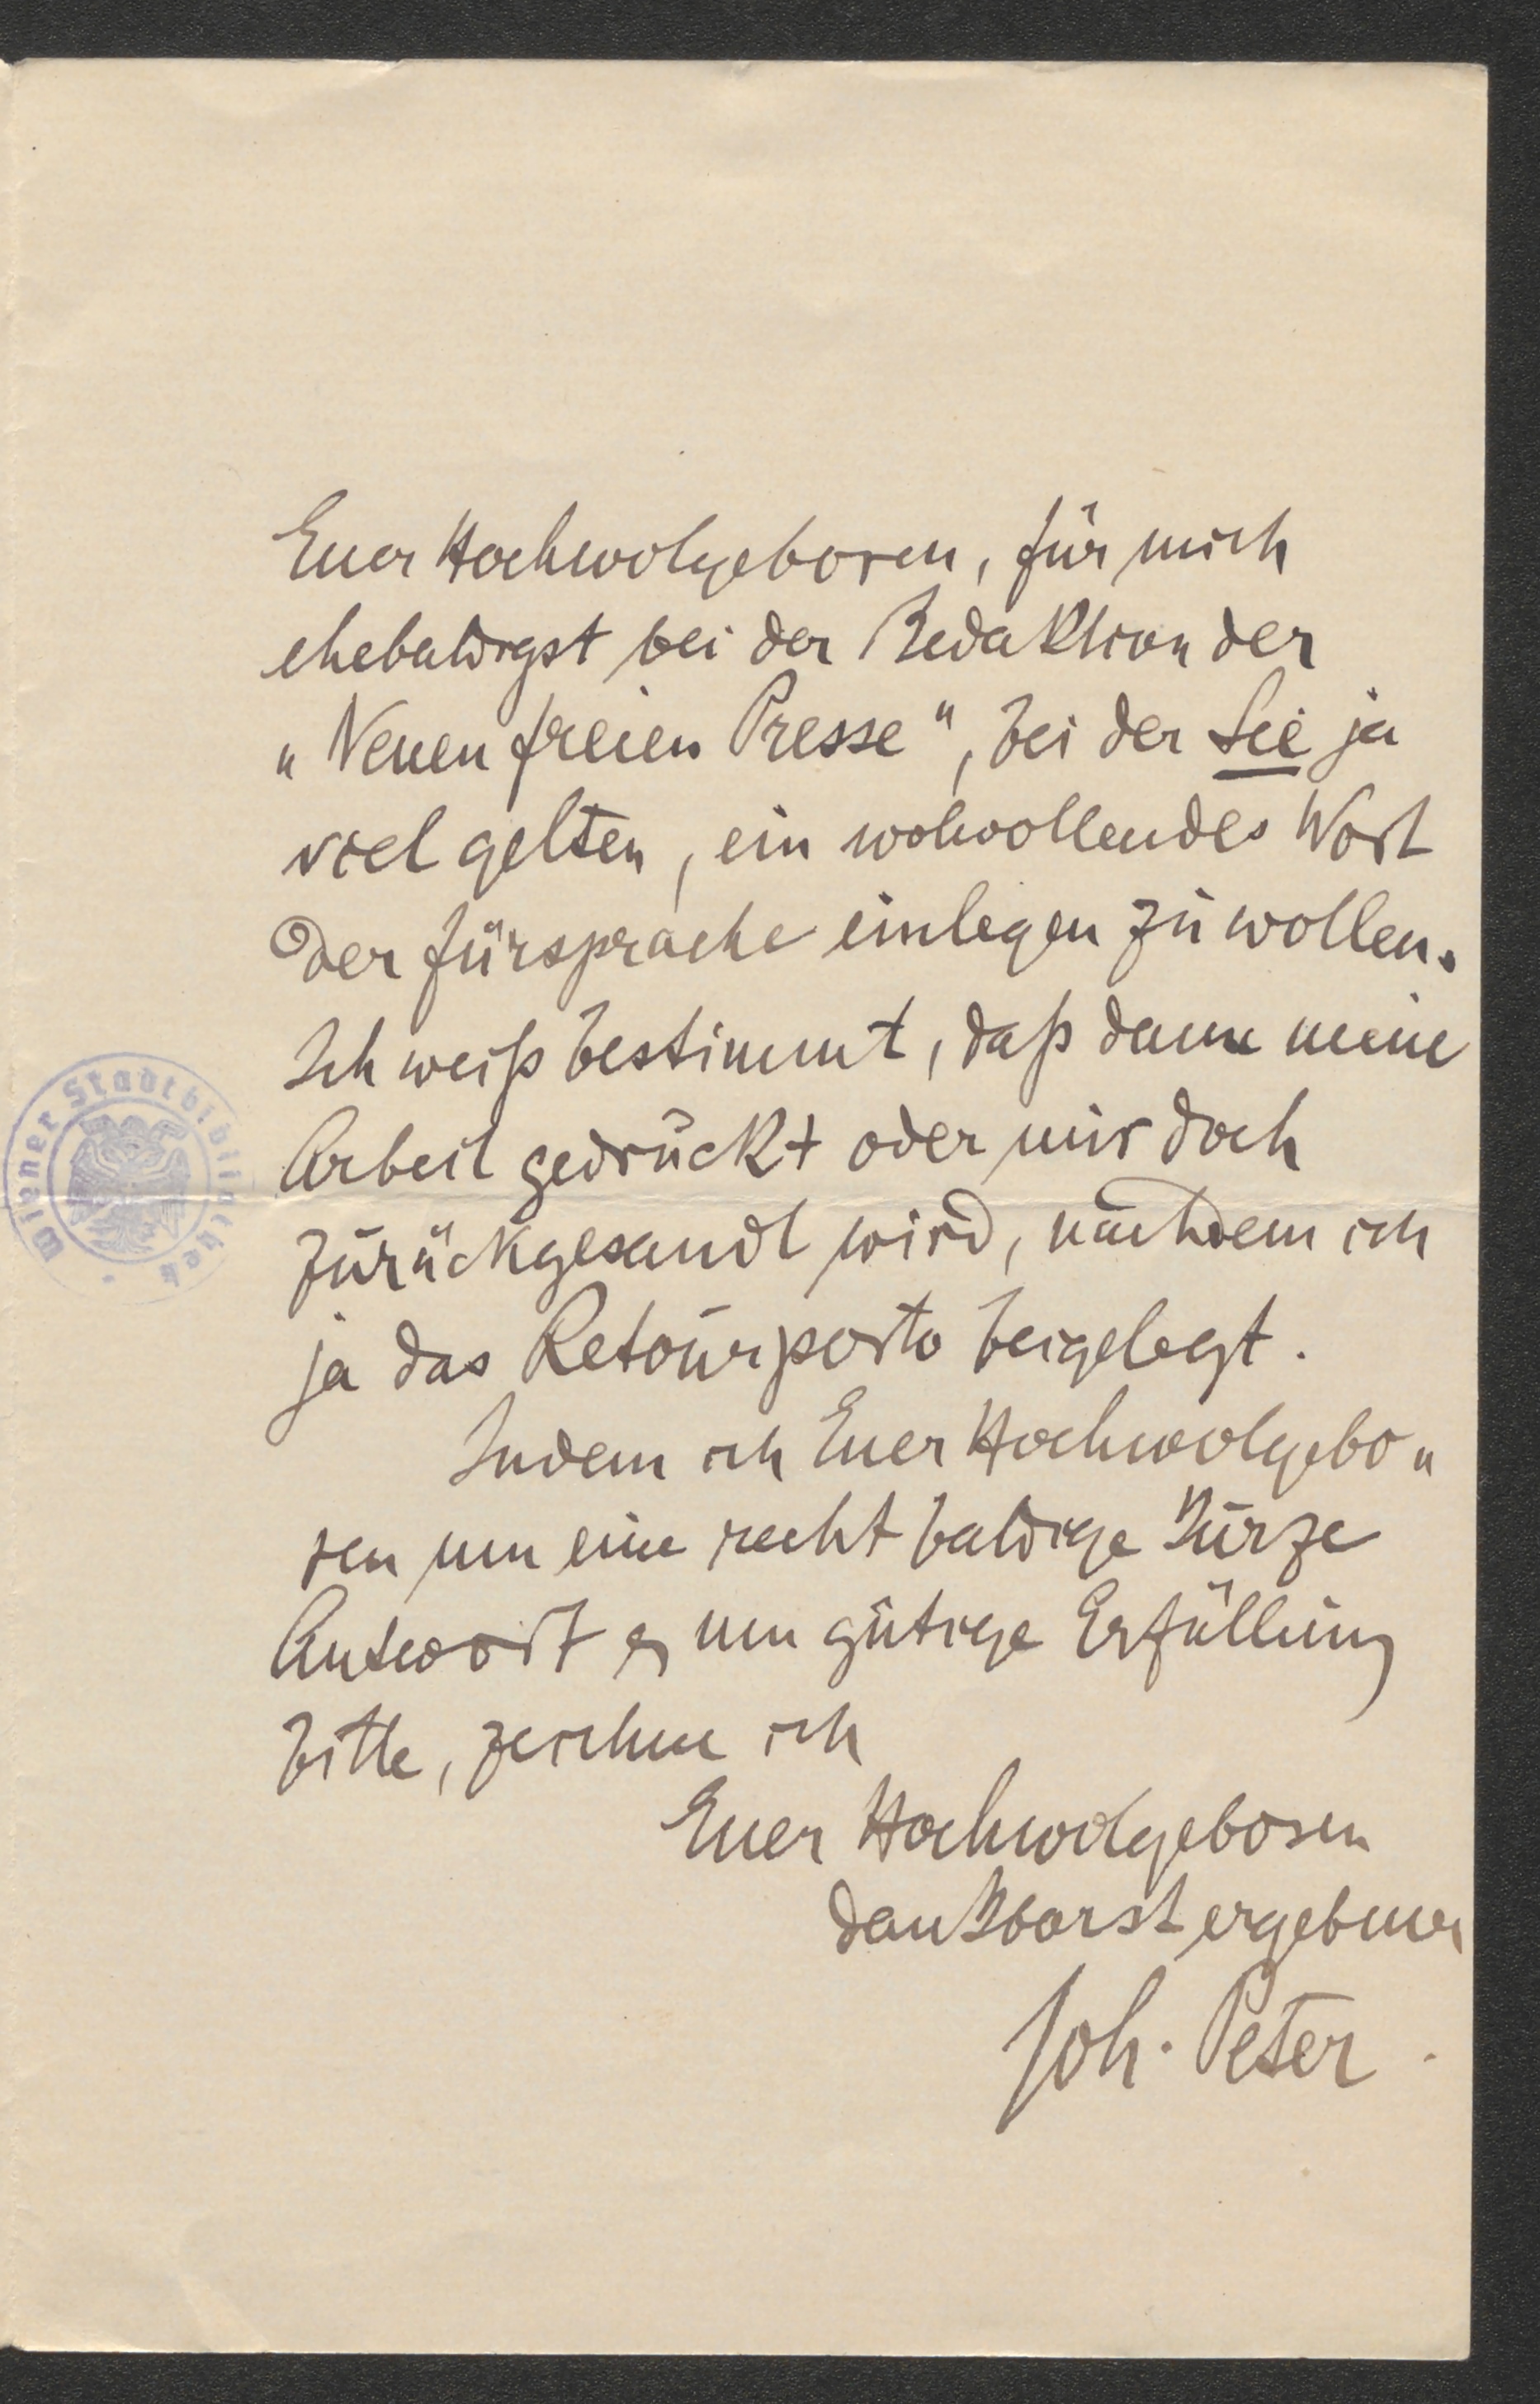 Euer Hochwolgeboren, für mich
ehebaldigst bei der Redaktion der
„Neuen freien Presse", bei der Sie ja
viel gelten, ein wolwollendes Wort
der Fürsprache einlegen zu wollen.
Ich weiß bestimmt, daß dann meine
Arbeit gedruckt oder mir doch
zurückgesandt wird, nachdem ich
ja das Retourporto beigelegt.
Indem ich Euer Hochwolgebo„
ren um eine recht baldige kurze
Antwort u um gütige Erfüllung
bitte, zeichne ich
Euer Hochwolgeboren
dankbarst ergebner
Joh. Peter.
Wiener Stadtbibliothek